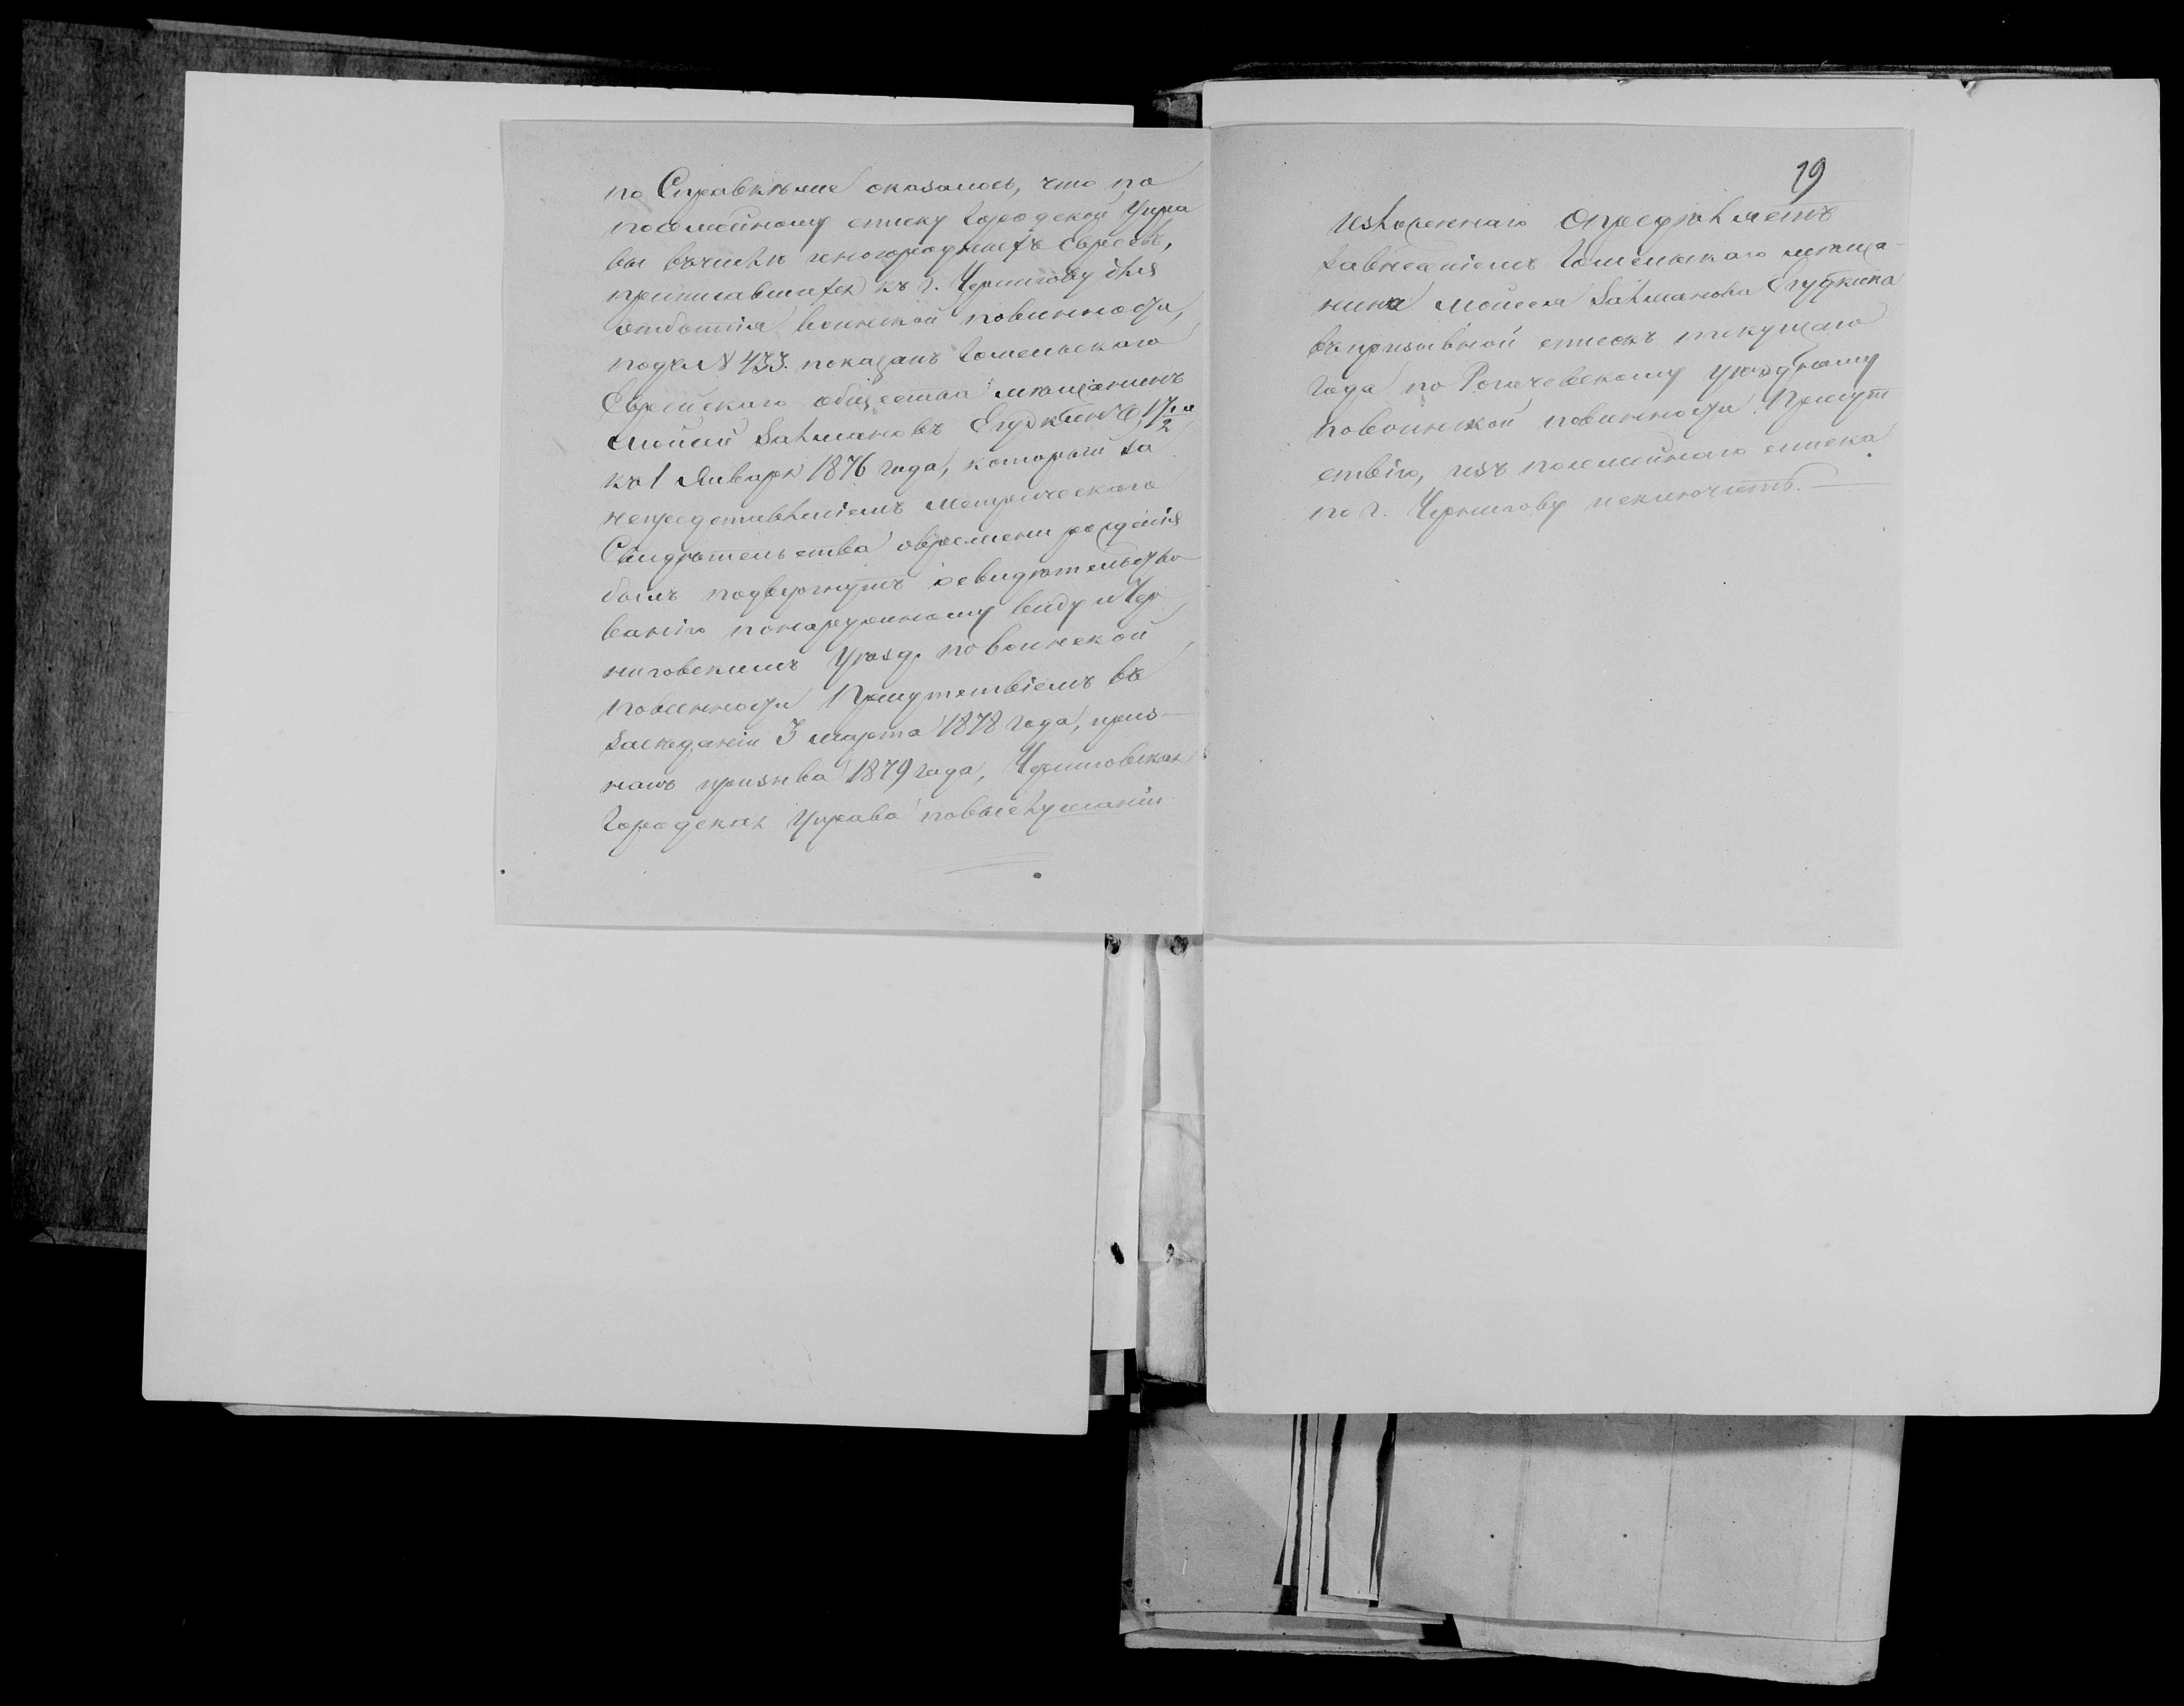 по Справкѣ же оказалось, что по
посемейному списку Городской Упра
вы въ числѣ иногородныхъ Евреевъ,
приписавшихся къ г. Чернигову для
отбытія воинской повинности,
подъ № 433. показанъ Гомельскаго
Еврейскаго общества мѣщанинъ
Мойсей Залмановъ Егудкинъ 17 1/2
къ 1 Января 1876 года, который за
непредставленіемъ метрическаго
Свидѣтельства о времени рожденія
былъ подвергнутъ освидѣтельство
ванію по наружному виду и Чер
ниговскимъ Уѣзд. по воинской
повинности Присутствіемъ въ
засѣданіи 3 марта 1878 года, приз-
нанъ призыва 1879 года, Черниговская
Городская Управа по выслушаніи
19
изложеннаго Опредѣляетъ
за внесеніемъ Гомельскаго мѣща-
нина Мойсея Залманова Егудкина
въ призывной списокъ текущаго
года по Рогачевскому уѣздному
по воинской повинности Присут
ствію, изъ посемейнаго списка
по г. Чернигову исключить.